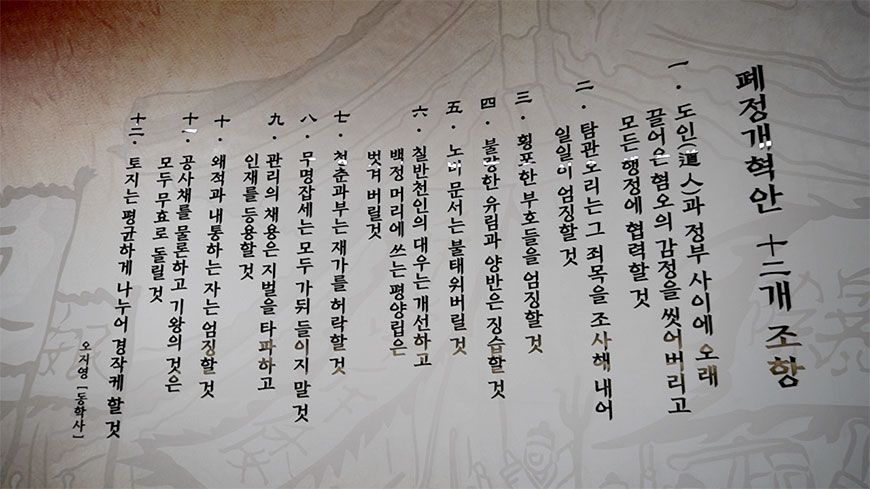 폐정개혁안 十二개 조항
一. 도인(道人)과 정부 사이에 오래
끌어온 혐오의 감정을 씻어버리고
모든 행정에 협력할 것
二. 탐관오리는 그 죄목을 조사해 내어
일일이 엄징할 것
三. 횡포한 부호들을 엄징할 것
四. 불량한 유림과 양반은 징습할 것
五. 노비 문서는 불태워버릴 것
六. 칠반천인의 대우는 개선하고
백정 머리에 쓰는 평양립은
벗겨 버릴것
七. 청춘과부는 재가를 허락할 것
八. 무명잡세는 모두 거둬 들이지 말 것
九. 관리의 채용은 지벌을 타파하고
인재를 등용할 것
十. 왜적과 내통하는 자는 엄징할 것
十一. 공사채를 물론하고 기왕의 것은
모두 무효로 돌릴 것
十二. 토지는 평균하게 나누어 경작케 할 것
오지영 [동학사]